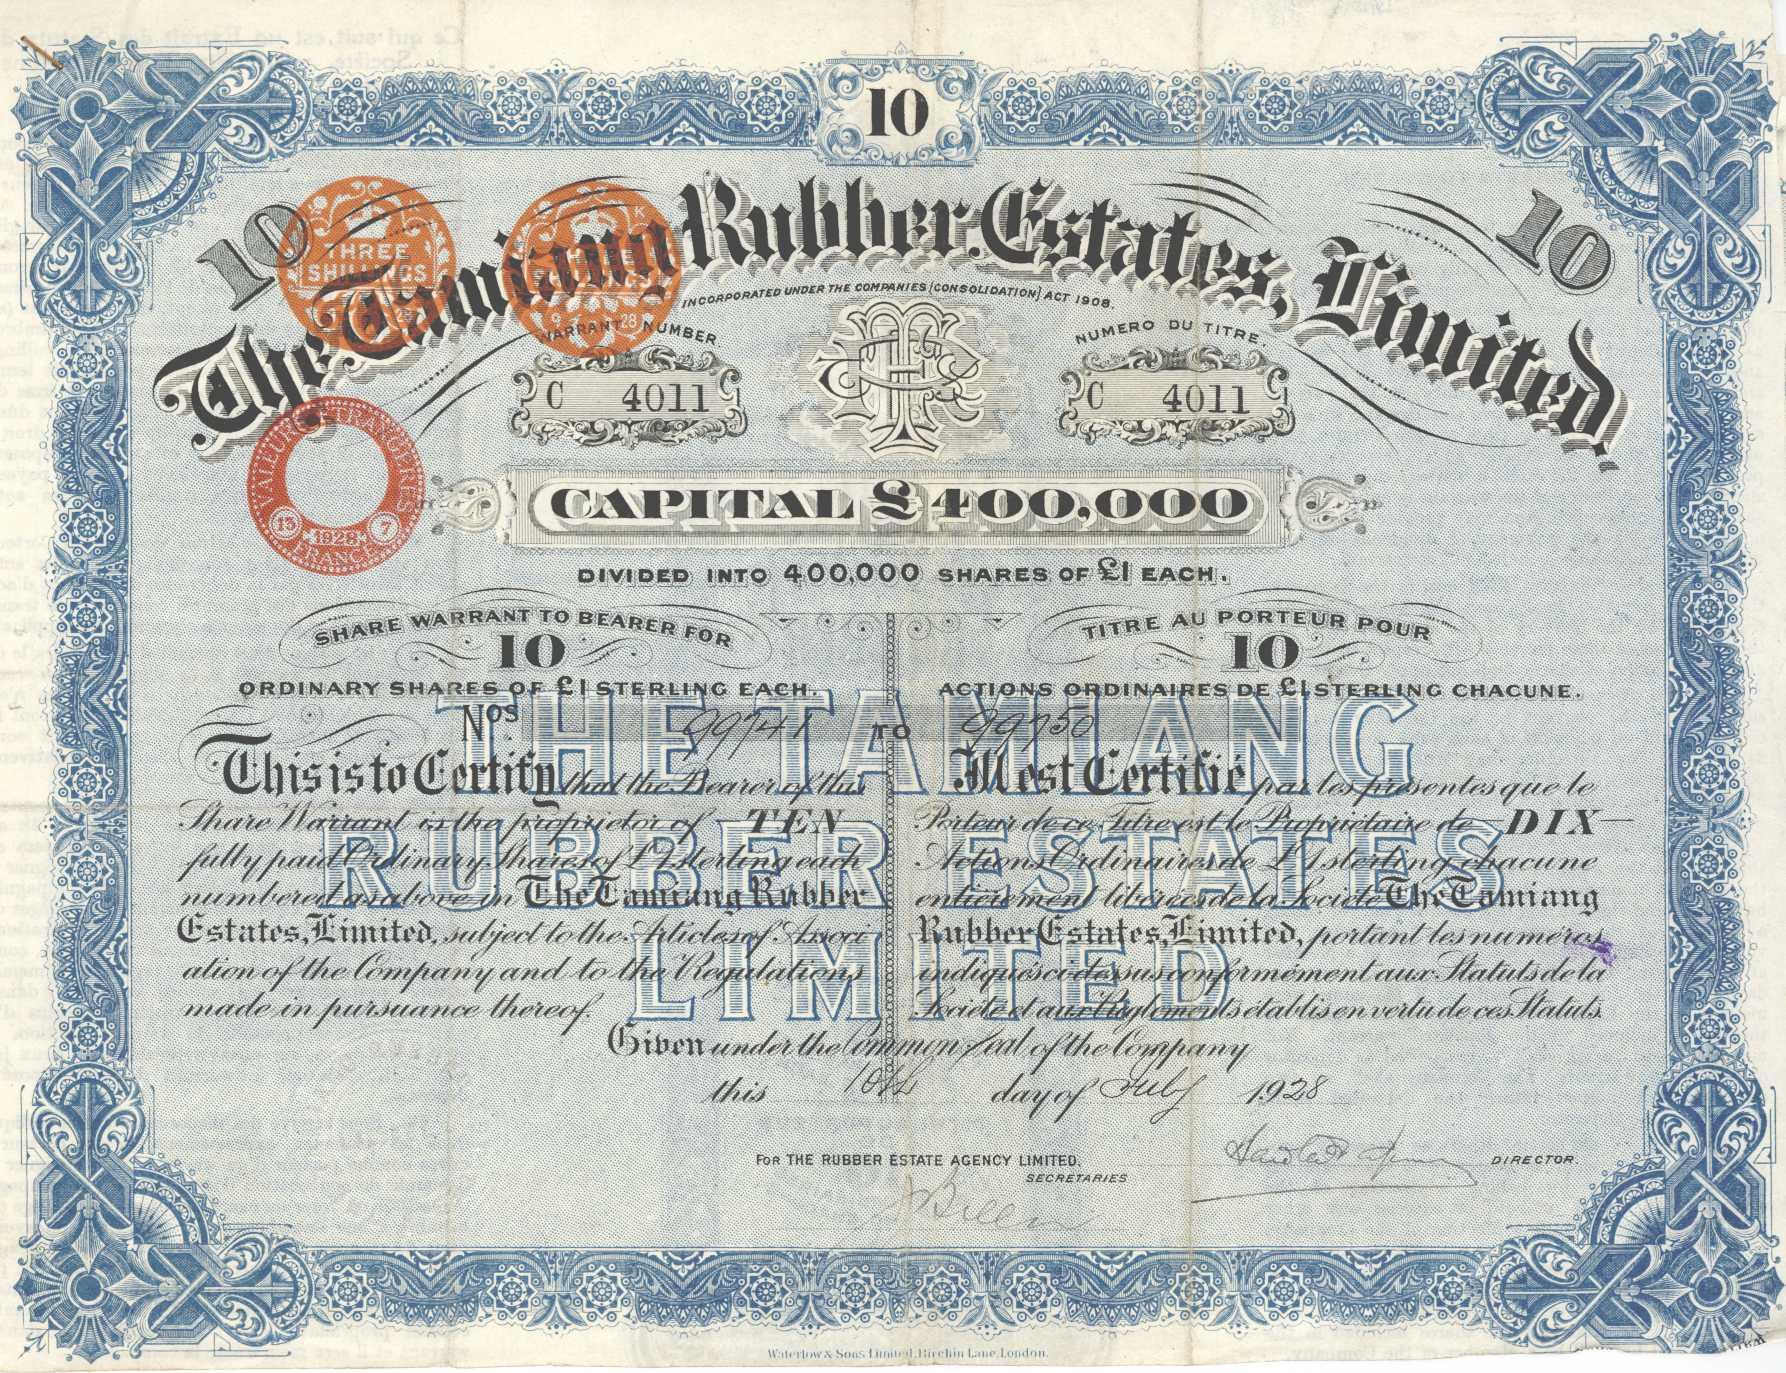 10
10
10
The Tamiang Rubber Estates, Limited.
THREE
SHILLINGS
THREE
SHILLINGS
INCORPORATED UNDER THE COMPANIES [CONSOLIDATION] ACT 1908.
WARRANT NUMBER
NUMERO DU TITRE.
C 4011
C 4011
VALEURS ETRANGERES
13 1928 7
FRANCE
CAPITAL £400,000
DIVIDED INTO 400,000 SHARES OF £1 EACH.
SHARE WARRANT TO BEARER FOR
10
ORDINARY SHARES OF £1 STERLING EACH.
TITRE AU PORTEUR POUR
10
ACTIONS ORDINAIRES DE £1 STERLING CHACUNE.
Nos 99741 TO 99750
THE TAMIANG
RUBBER ESTATES
LIMITED
This is to Certify that the Bearer of this
Share Warrant is the proprietor of TEN
fully paid Ordinary Shares of £1 sterling each
numbered as above in The Tamiang Rubber
Estates, Limited, subject to the Articles of Associ
ation of the Company and to the Regulations
made in pursuance thereof.
Il est Certifié par les présentes que le
Porteur de ce Titre est le Propriétaire de DIX
Actions Ordinaires de £1 sterling chacune
entièrement libérées de la Société The Tamiang
Rubber Estates, Limited, portant les numéros
indiqués ci dessus conformément aux Statuts de la
Société et aux Règlements établis en vertu de ces Statuts.
Given under the Common Seal of the Company
this 10th day of July 1928
FOR THE RUBBER ESTATE AGENCY LIMITED,
SECRETARIES
DIRECTOR.
Waterlow & Sons Limited, Birchin Lane, London.